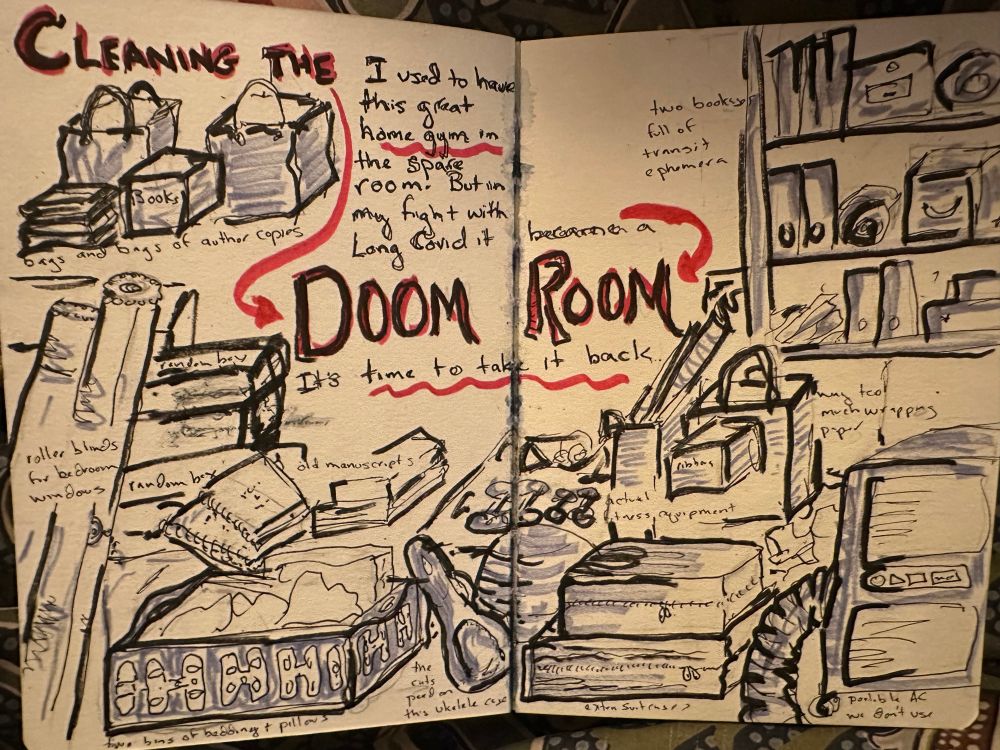 CLEANING THE
I used to have
this great
home gym in
the spare
room. But in
my fight with
Long Covid it
became a
DOOM ROOM
It's time to take it back.
Books
bags and bags of author copies
two books
full of
transit
ephemera
roller blinds
for bedroom
windows
random box
random box
old manuscripts
actual
fitness equipment
ribbons
way too
much wrapping
paper
two bins of bedding + pillows
the
cats
peed on
this ukelele case
extra suitcases
portable AC
we don't use